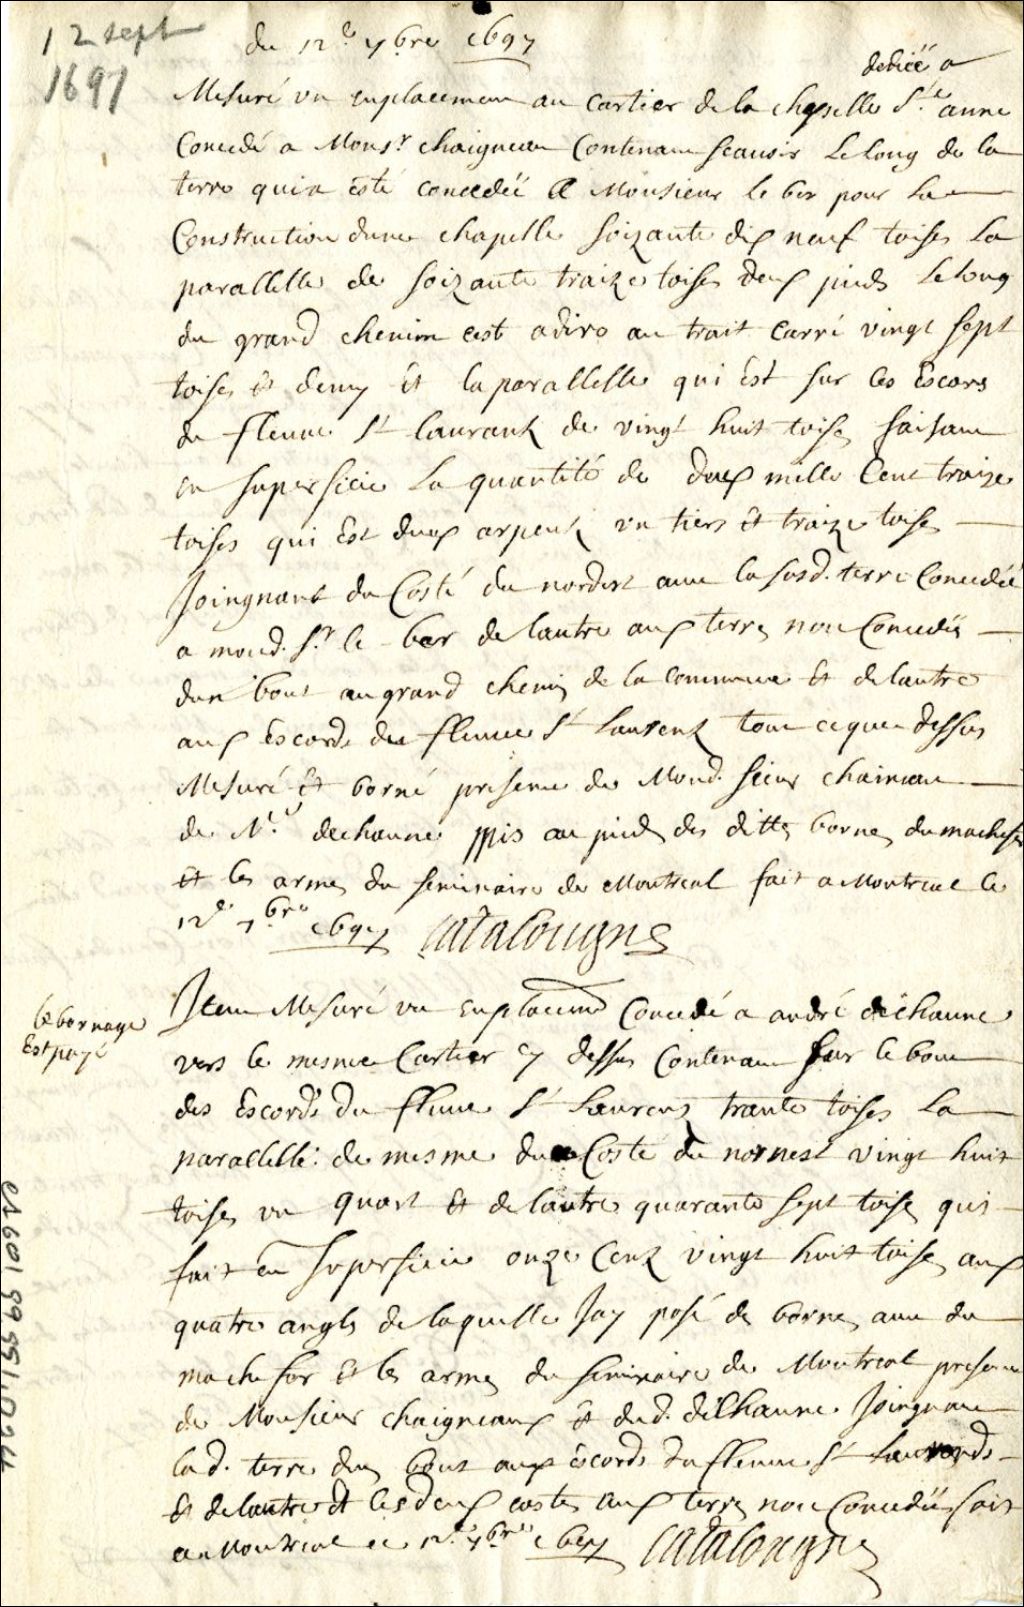 12 sept
1697
du 12e 7bre 1697
dediée a
Mesuré un emplacement au cartier de la chapelle Ste anne
Concedé a Monsr chaigneau Contenant scauoir Le long de la
terre qui a esté concedéé A Monsieur le ber pour la
Construction dune chapelle soizante dix neuf toises La
parallelle de soizante traize toises deux pieds Le long
du grand chemin cest adire au trait carré vingt sept
toises et demy et la parallelle qui est sur les Escors
du fleuue St laurank de vingt huit toises faisant
en superficie La quantité de deux mille Cent traize
toises qui Est deux arpents un tiers et traize toises
Joingnant du Costé du nordest auec la susd. terre Concedéé
a mond. Sr le ber de lautre aux terres non Concedéés
dun bout au grand chemin de la commune et de lautre
aux Escords du fleuue St Laurent tout ce que dessus
Mesuré et borné presence de Mond. sieur chaineau
de Nt dechaune mis au pied des dittes bornes du machefer
et les armes du seminaire de Montreal fait a Montreal le
12e 7bre 1697 Catalougne
Le bornage
Est payé
Item Mesuré un Emplacemt Concedé a andré dechaune
vers le mesme Cartier cy dessus Contenant sur le bout
des Escords du fleuue St Laurens trante toises La
parallelle de mesme du Costé du nornest vingt huit
toises un quart et de lautre quarante sept toises qui
fait en superficie onze Cent vingt huit toises aux
quatre angles de laquelle Jay posé des bornes auec du
machefer et les armes du seminaire de Montreal presence
de Monsieur chaigneaux et dud. déChaune. Joingnant
lad. terre dun bout aux éscords du fleuue St Laurends
et de lautre et les deux costes aux terres non Concedéés fait
a Montreal ce 12e 7bre 1697 Catalougne
CA601 S9 SS1 D24